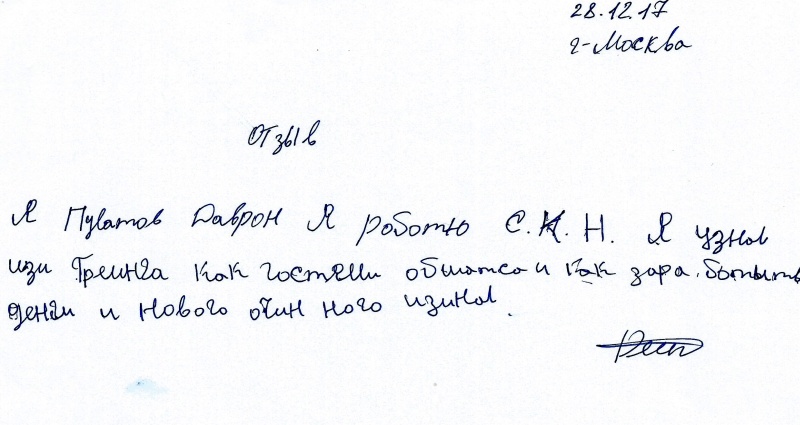 28.12.17
г-Москва
Отзыв
Я Пулатов Даврон Я роботю С.К.Н. Я узнол
изи Треинга как гостями общатса и как зара.ботыть
денги и нового очин ного изинол.